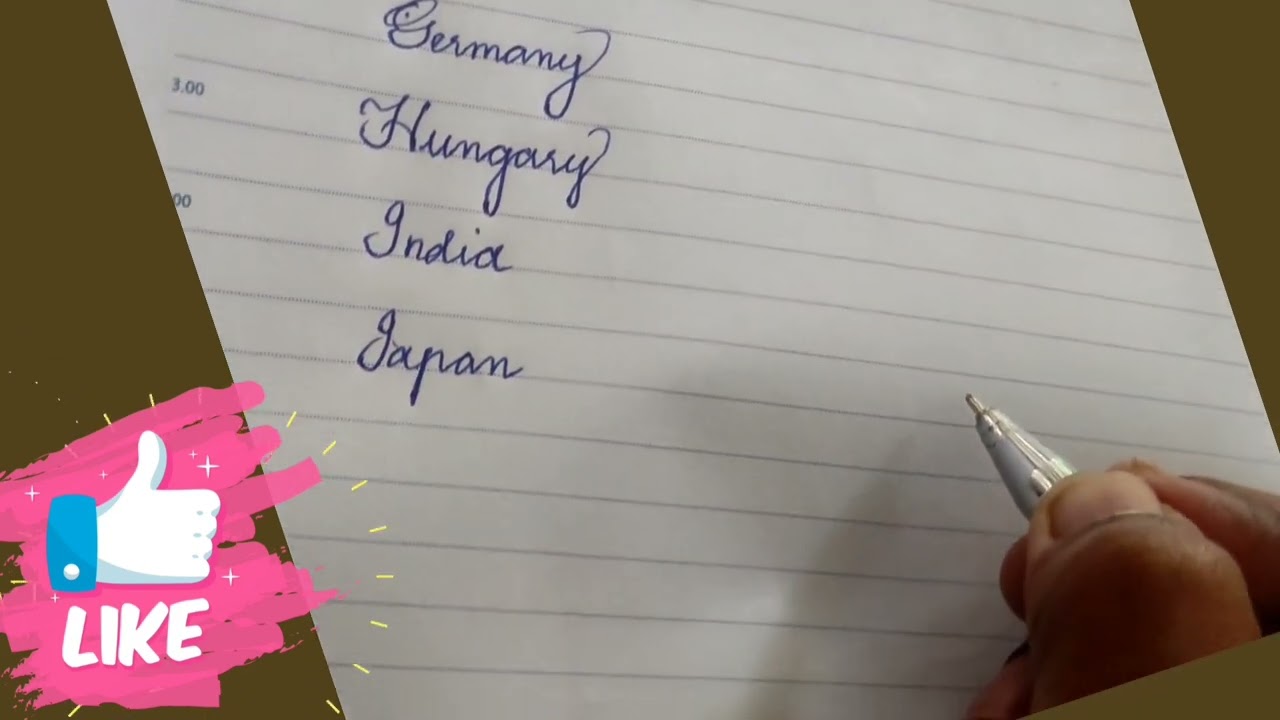 Germany
3.00
Hungary
00
India
Japan
LIKE